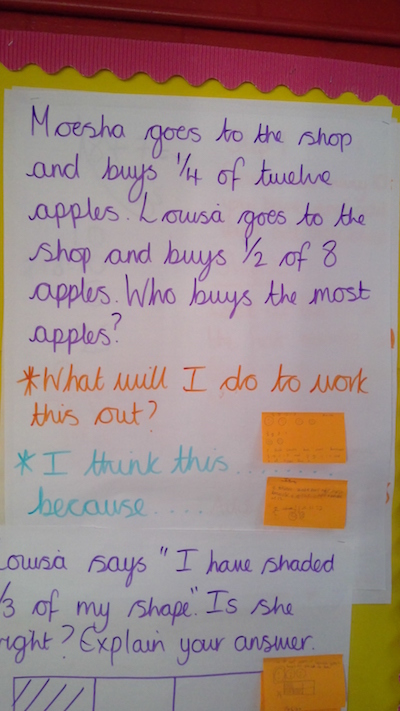 Moesha goes to the shop
and buys 1/4 of twelve
apples. Lowsà goes to the
shop and buys 1/2 of 8
apples. Who buys the most
apples?
*What will I do to work
this out?
* I think this.......
because....
Lowsà says "I have shaded
1/3 of my shape". Is she
right? Explain your answer.